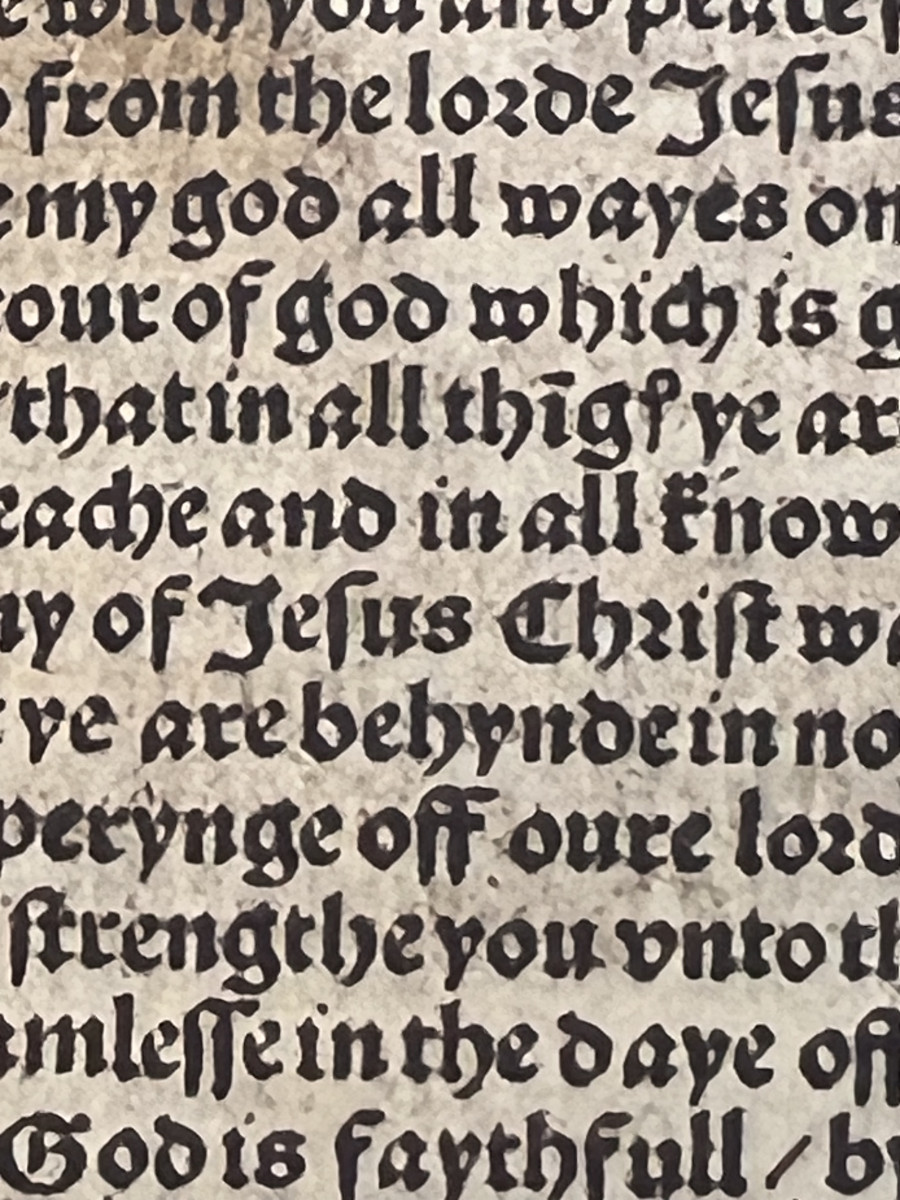 with you and peace
from the lorde Jeſus
my god all wayes on
our of god which is g
that in all thīgꝭ ye are
eache and in all know
ny of Jeſus Chriſt wa
ye are behynde in no
perynge off oure lord
ſtrengthe you vnto th
amleſſe in the daye off
God is faythfull / by